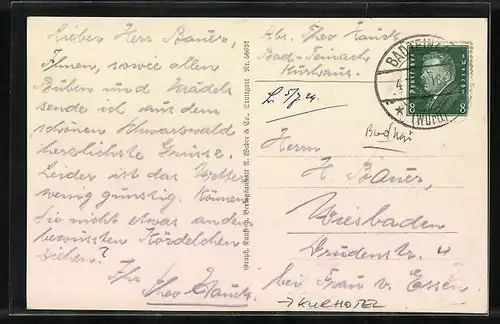 Lieber Herr Bauer,
Ihnen, sowie allen
Buben und Mädels
sende ich aus dem
schönen Schwarzwald
herzlichste Grüsse.
Leider ist das Wetter
wenig günstig. Können
Sie nicht etwas an dem
bewussten Kördelchen
ziehen?
Ihr
Theo
Graph. Kunst- u. Verlagsanstalt A. Weber & Co., Stuttgart Nr. 58037
Abs. Theo
Bad-Teinach
Kurhaus.
5/7 29.
BAD TEINACH
(WÜRTT)
8 8
Herrn
H. Bauer,
Wiesbaden
Drudenstr.
bei Frau v. Essen
→ KURHOTEL